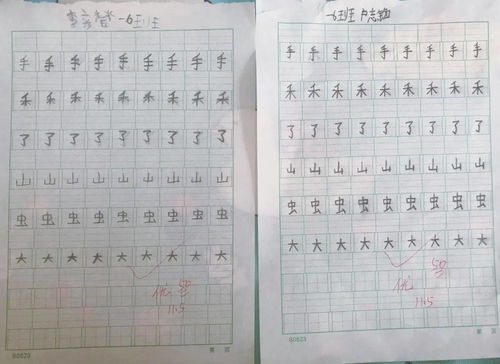 一6班
手手手手手手手手手
禾禾禾禾禾禾禾禾禾
了了了了了了了了了
山山山山山山山山山
虫虫虫虫虫虫虫虫虫
大大大大大大大大大
优
11.5
B0523
第 页
一6班 卢志
手手手手手手手手手
禾禾禾禾禾禾禾禾禾
了了了了了了了了了
山山山山山山山山山
虫虫虫虫虫虫虫虫虫
大大大大大大大大大
优
11.5
B0523
第 页